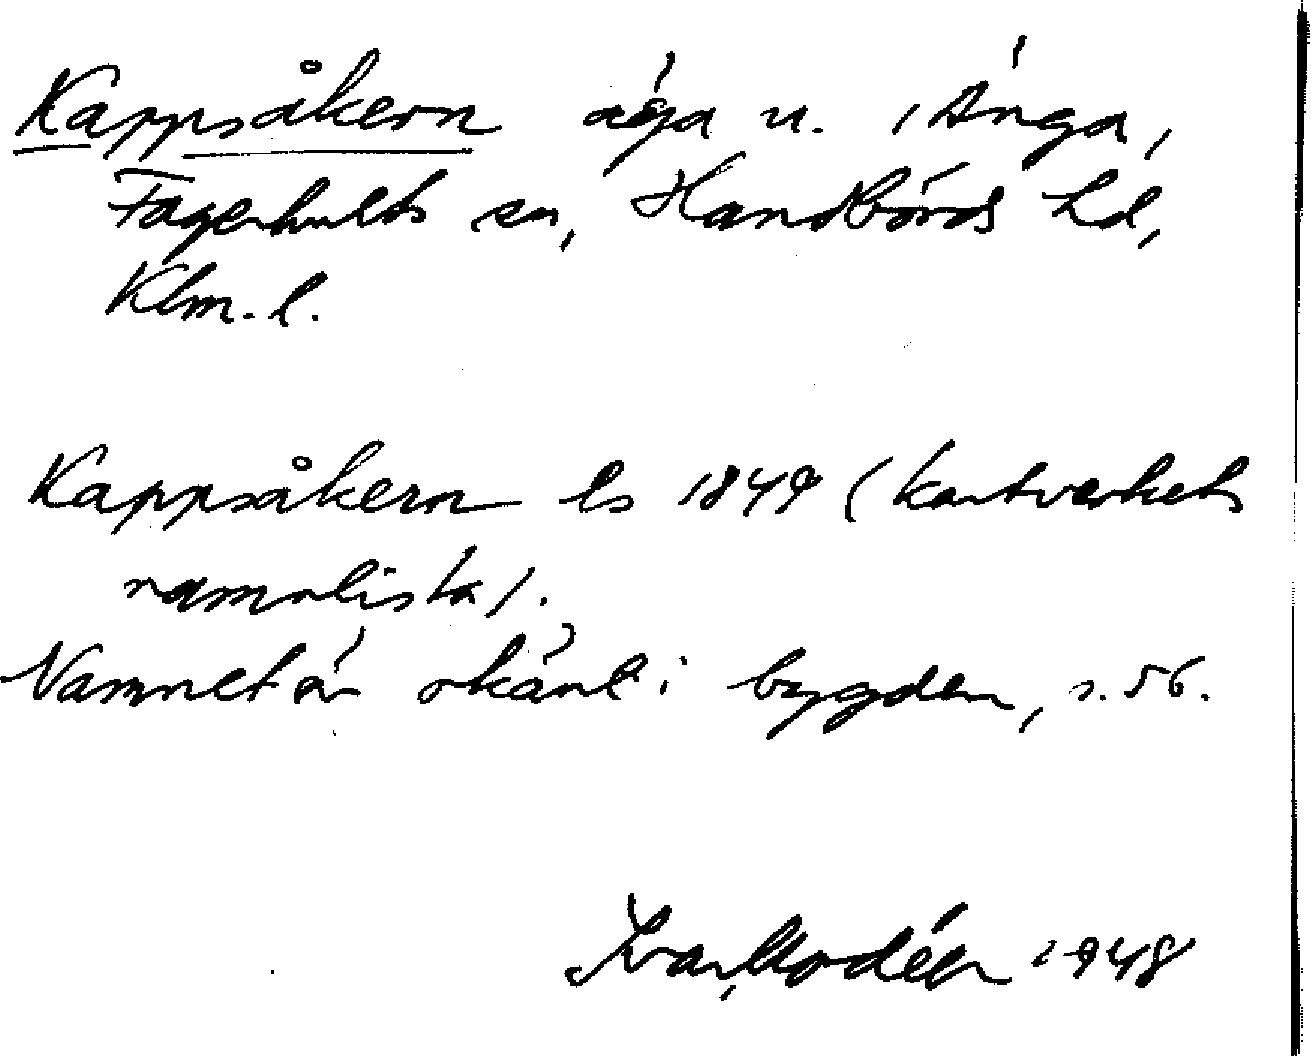 Kappsåkern äga u. Änga,
Fagerhults sn, Handbörds hd,
Klm. l.
Kappsåkern ls 1849 (kartverkets
namnlista).
Namnet är okänt i bygden, s. 56.
Ivar Modéer 1948